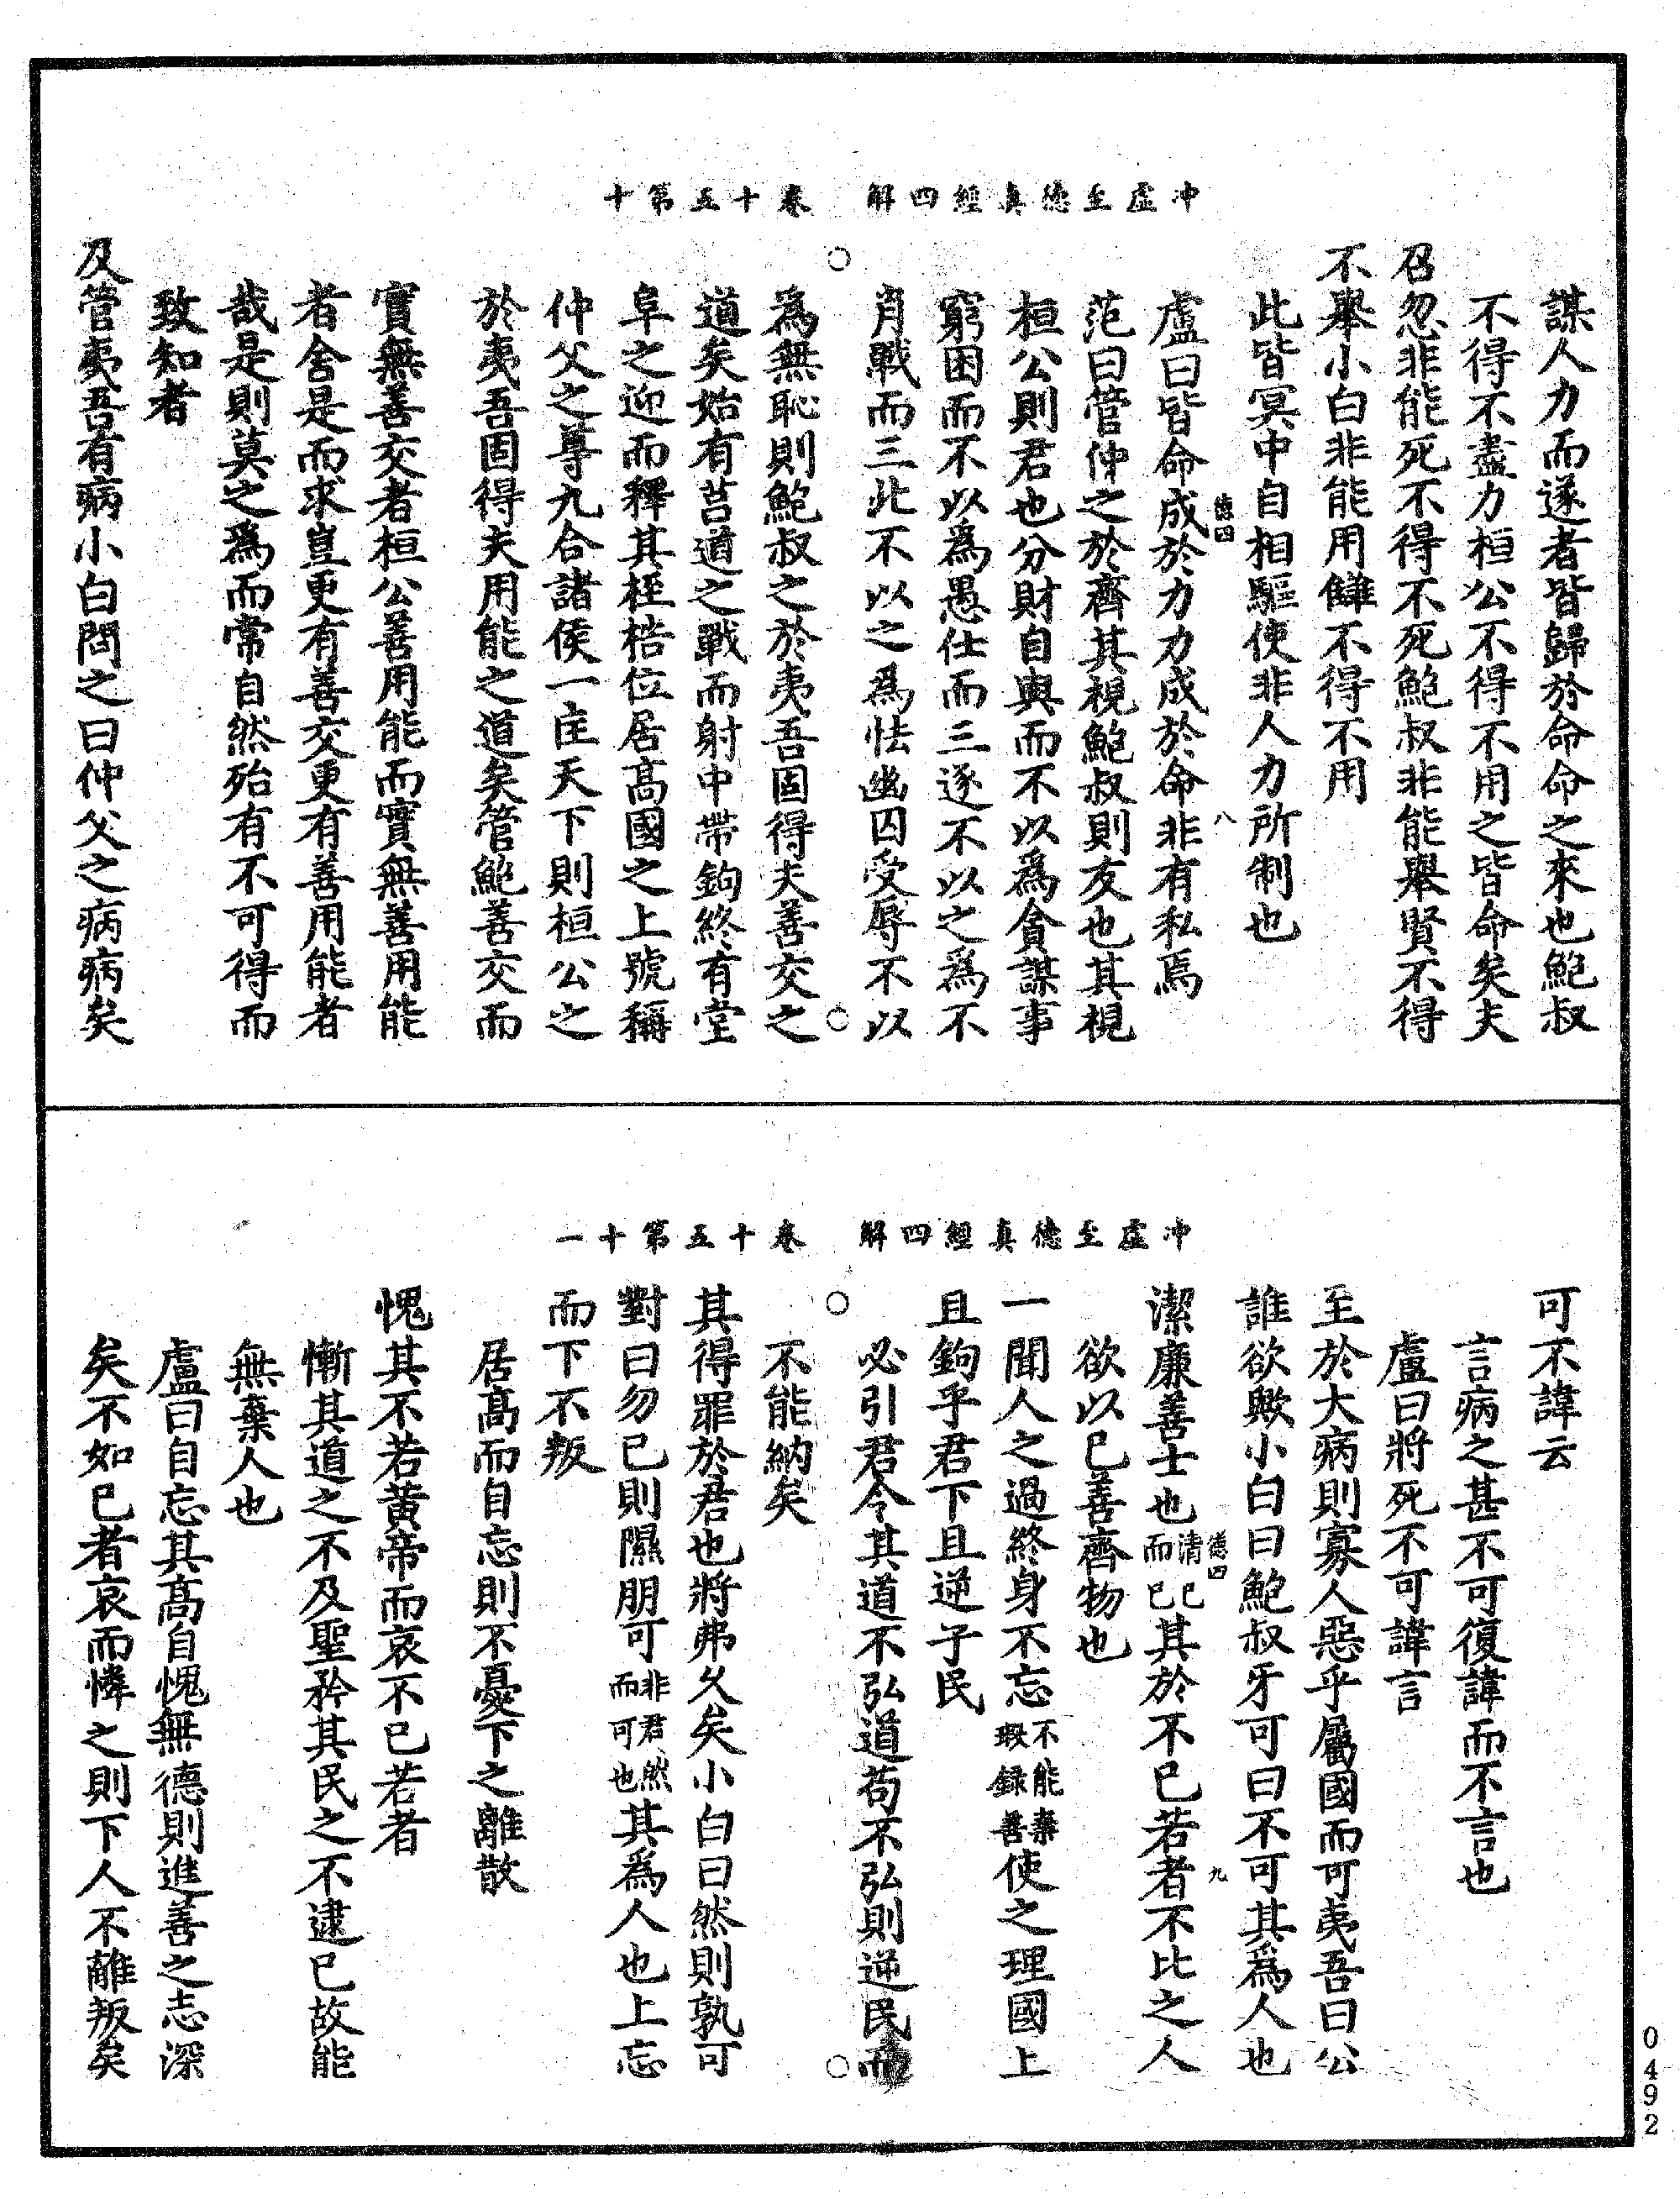 冲虛至德真經四解　卷十五第十
謀人力而遂者皆歸於命命之來也鮑叔
不得不盡力桓公不得不用之皆命矣夫
召忽非能死不得不死鮑叔非能舉賢不得
不舉小白非能用讎不得不用
此皆冥中自相驅使非人力所制也
德四　八
盧曰皆命成於力力成於命非有私焉
范曰管仲之於齊其視鮑叔則友也其視
桓公則君也分財自與而不以爲貪謀事
窮困而不以爲愚仕而三逐不以之爲不
肖戰而三北不以之爲怯幽囚受辱不以
爲無恥則鮑叔之於夷吾固得夫善交之
道矣始有莒道之戰而射中帶鉤終有堂
阜之迎而釋其桎梏位居高國之上號稱
仲父之尊九合諸侯一匡天下則桓公之
於夷吾固得夫用能之道矣管鮑善交而
實無善交者桓公善用能而實無善用能
者舍是而求豈更有善交更有善用能者
哉是則莫之爲而常自然殆有不可得而
致知者
及管夷吾有病小白問之曰仲父之病病矣
冲虛至德真經四解　卷十五第十一
可不諱云
言病之甚不可復諱而不言也
盧曰將死不可諱言
至於大病則寡人惡乎屬國而可夷吾曰公
誰欲歟小白曰鮑叔牙可曰不可其爲人也
德四　九
潔廉善士也清己而已其於不已若者不比之人
欲以已善齊物也
一聞人之過終身不忘不能棄瑕錄善使之理國上
且鉤乎君下且逆乎民
必引君令其道不弘道苟不弘則逆民而
不能納矣
其得罪於君也將弗久矣小白曰然則孰可
對曰勿已則隰朋可非君然而可也其爲人也上忘
而下不叛
居高而自忘則不憂下之離散
愧其不若黃帝而哀不已若者
慚其道之不及聖矜其民之不逮已故能
無棄人也
盧曰自忘其高自愧無德則進善之志深
矣不如已者哀而憐之則下人不離叛矣
0492